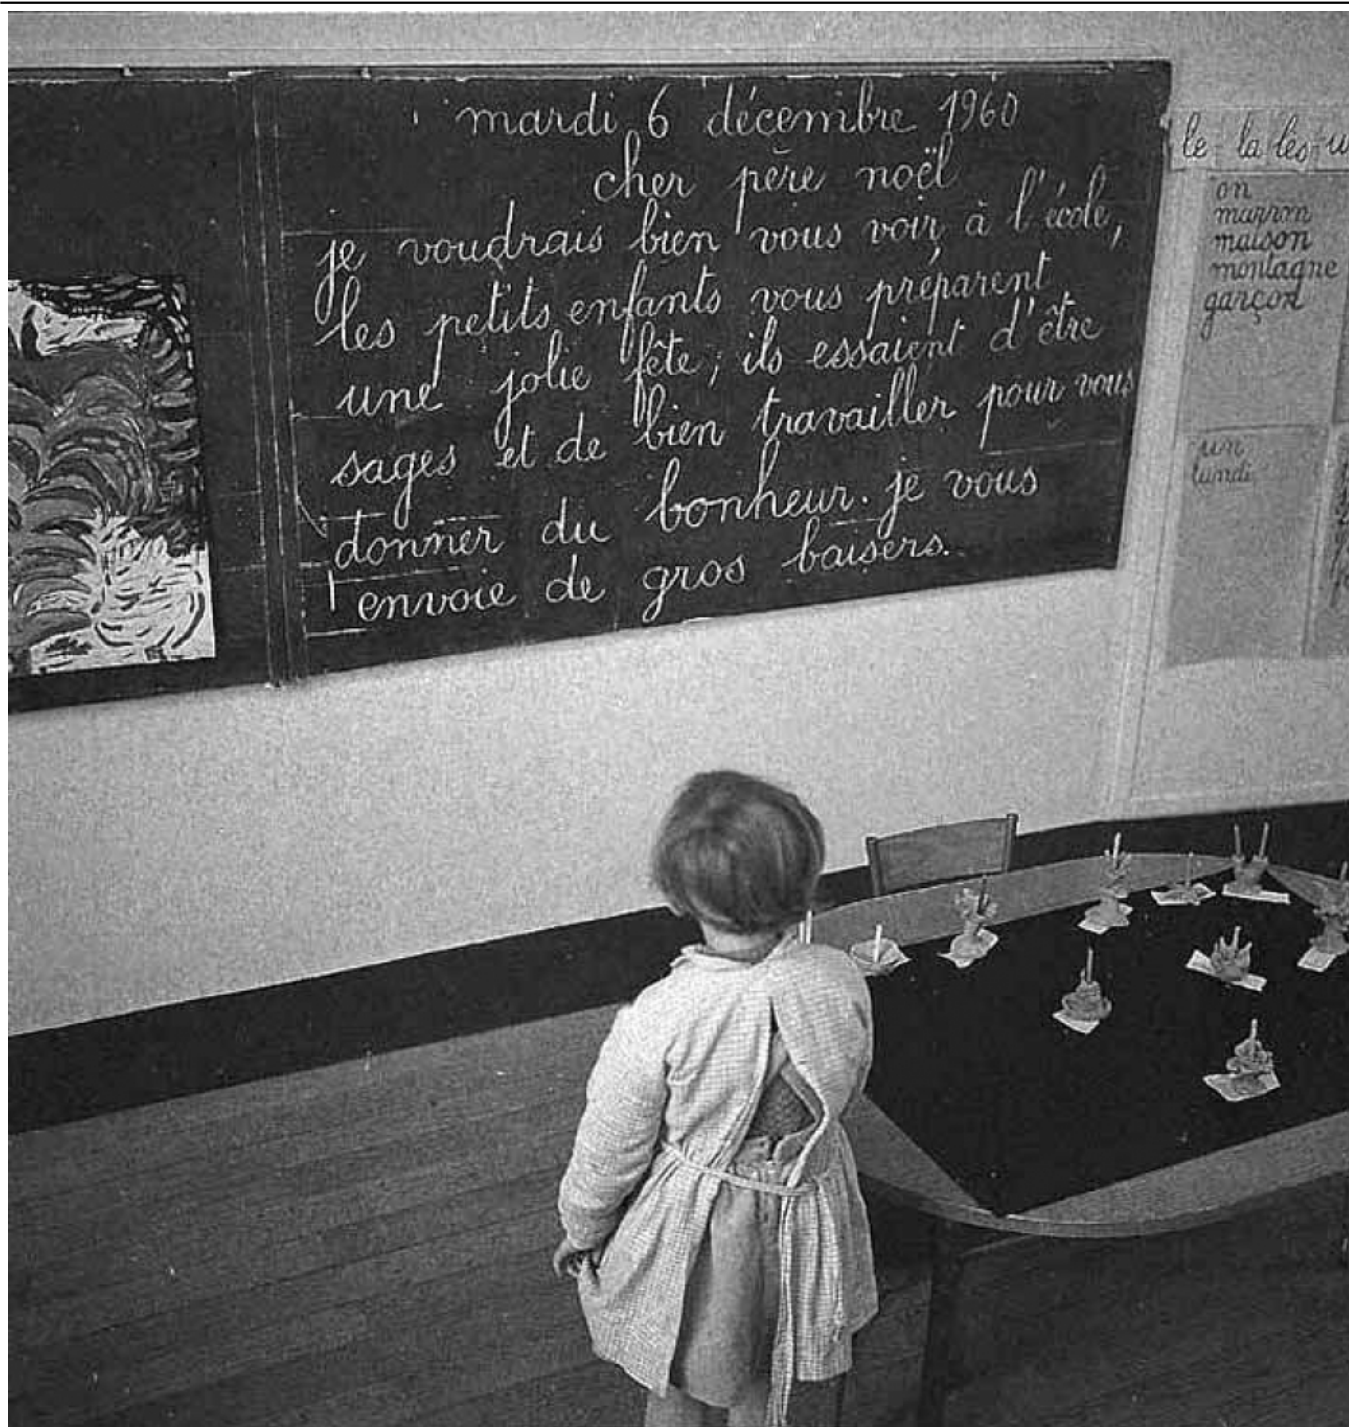 mardi 6 décembre 1960
cher père noël
je voudrais bien vous voir à l'école,
les petits enfants vous préparent
une jolie fête, ils essaient d'être
sages et de bien travailler pour vous
donner du bonheur. je vous
envoie de gros baisers.
le la les
on
marron
maison
montagne
garçon
un
lundi